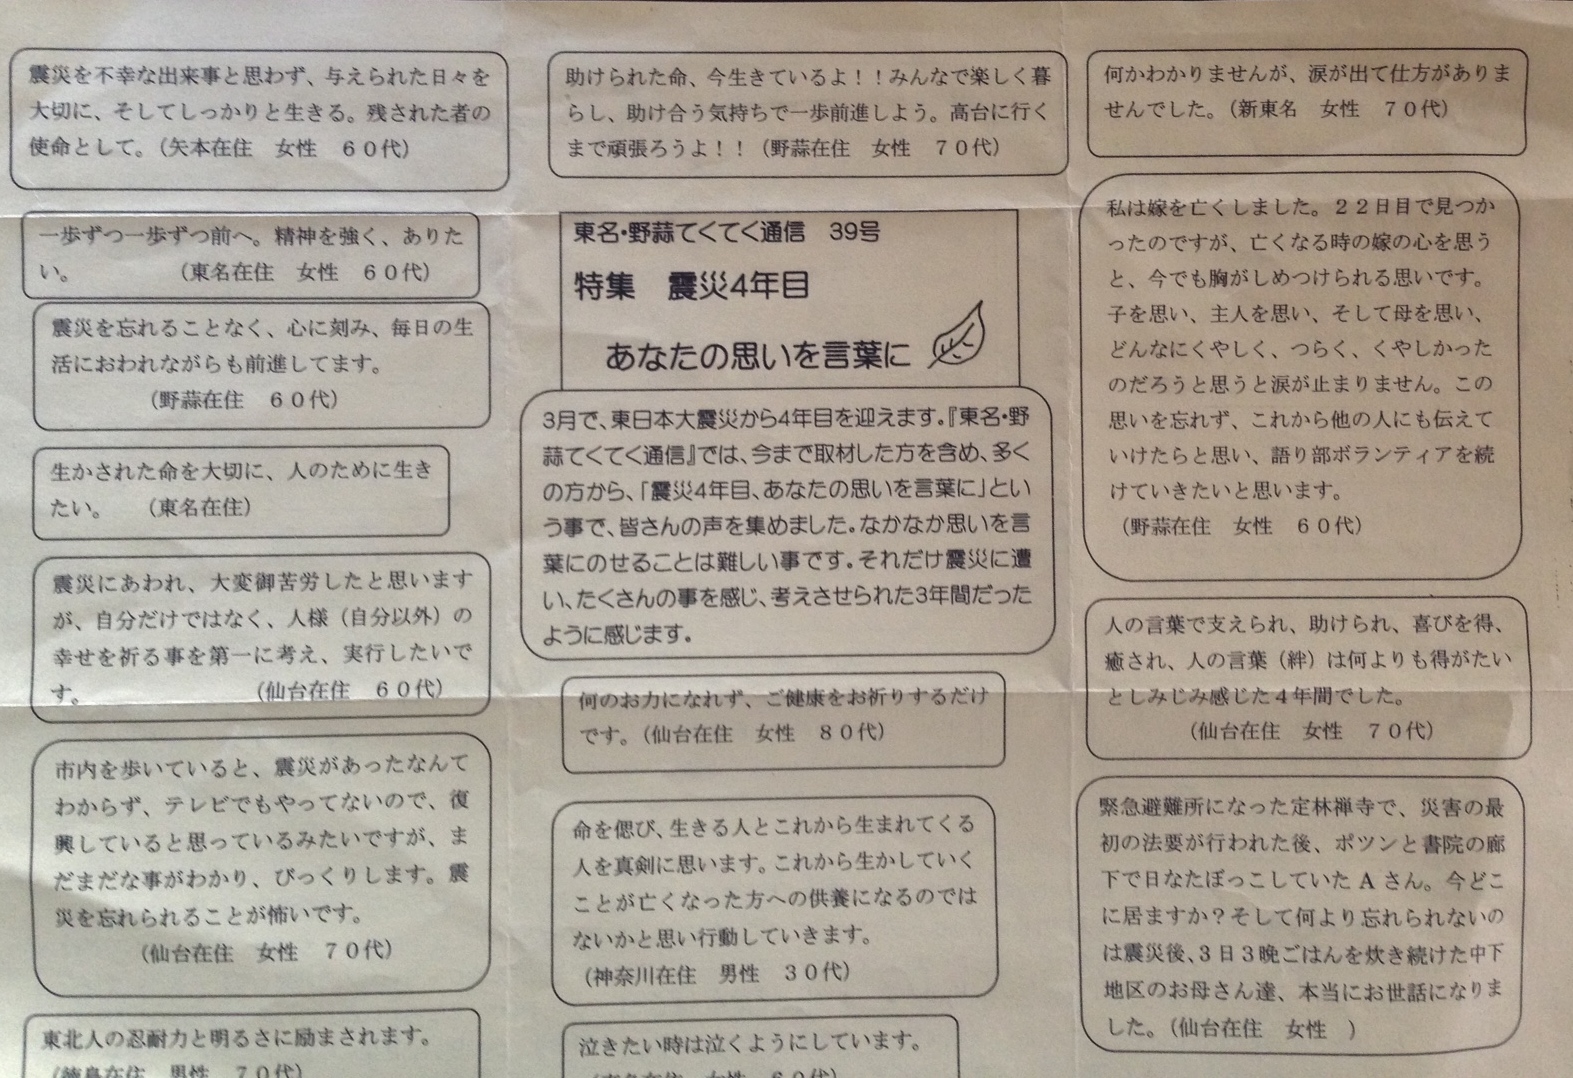 震災を不幸な出来事と思わず、与えられた日々を
大切に、そしてしっかりと生きる。残された者の
使命として。（矢本在住　女性　６０代）
一歩ずつ一歩ずつ前へ。精神を強く、ありた
い。　　　　　（東名在住　女性　６０代）
震災を忘れることなく、心に刻み、毎日の生
活におわれながらも前進してます。
（野蒜在住　６０代）
生かされた命を大切に、人のために生き
たい。　（東名在住）
震災にあわれ、大変御苦労したと思います
が、自分だけではなく、人様（自分以外）の
幸せを祈る事を第一に考え、実行したいで
す。　　　　　　　　（仙台在住　６０代）
市内を歩いていると、震災があったなんて
わからず、テレビでもやってないので、復
興していると思っているみたいですが、ま
だまだな事がわかり、びっくりします。震
災を忘れられることが怖いです。
（仙台在住　女性　７０代）
東北人の忍耐力と明るさに励まされます。
（徳島在住　男性　７０代）
助けられた命、今生きているよ！！みんなで楽しく暮
らし、助け合う気持ちで一歩前進しよう。高台に行く
まで頑張ろうよ！！（野蒜在住　女性　７０代）
東名・野蒜てくてく通信　39号
特集　震災4年目
あなたの思いを言葉に
3月で、東日本大震災から4年目を迎えます。『東名・野
蒜てくてく通信』では、今まで取材した方を含め、多く
の方から、「震災4年目、あなたの思いを言葉に」とい
う事で、皆さんの声を集めました。なかなか思いを言
葉にのせることは難しい事です。それだけ震災に遭
い、たくさんの事を感じ、考えさせられた3年間だった
ように感じます。
何のお力になれず、ご健康をお祈りするだけ
です。（仙台在住　女性　８０代）
命を偲び、生きる人とこれから生まれてくる
人を真剣に思います。これから生かしていく
ことが亡くなった方への供養になるのでは
ないかと思い行動していきます。
（神奈川在住　男性　３０代）
泣きたい時は泣くようにしています。
女性　６０代）
何かわかりませんが、涙が出て仕方がありま
せんでした。（新東名　女性　７０代）
私は嫁を亡くしました。２２日目で見つか
ったのですが、亡くなる時の嫁の心を思う
と、今でも胸がしめつけられる思いです。
子を思い、主人を思い、そして母を思い、
どんなにくやしく、つらく、くやしかった
のだろうと思うと涙が止まりません。この
思いを忘れず、これから他の人にも伝えて
いけたらと思い、語り部ボランティアを続
けていきたいと思います。
（野蒜在住　女性　６０代）
人の言葉で支えられ、助けられ、喜びを得、
癒され、人の言葉（絆）は何よりも得がたい
としみじみ感じた４年間でした。
（仙台在住　女性　７０代）
緊急避難所になった定林禅寺で、災害の最
初の法要が行われた後、ポツンと書院の廊
下で日なたぼっこしていた A さん。今どこ
に居ますか？そして何より忘れられないの
は震災後、３日３晩ごはんを炊き続けた中下
地区のお母さん達、本当にお世話になりま
した。（仙台在住　女性　）